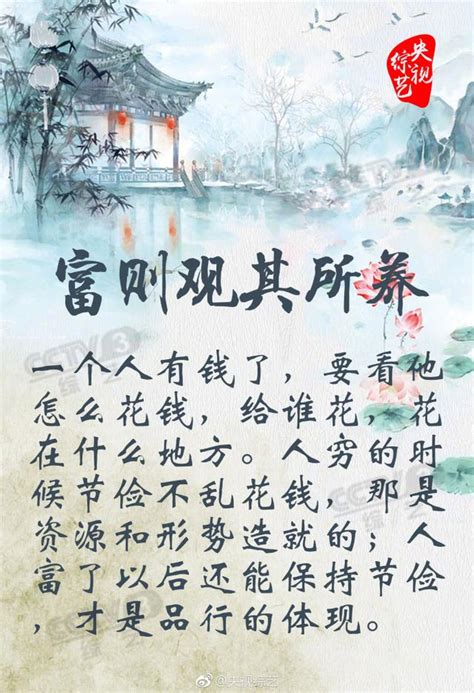 央视
综艺
富则观其所养
一个人有钱了，要看他
怎么花钱，给谁花，花
在什么地方。人穷的时
候节俭不乱花钱，那是
资源和形势造就的；人
富了以后还能保持节俭
，才是品行的体现。
CCTV 3
综艺
@央视综艺